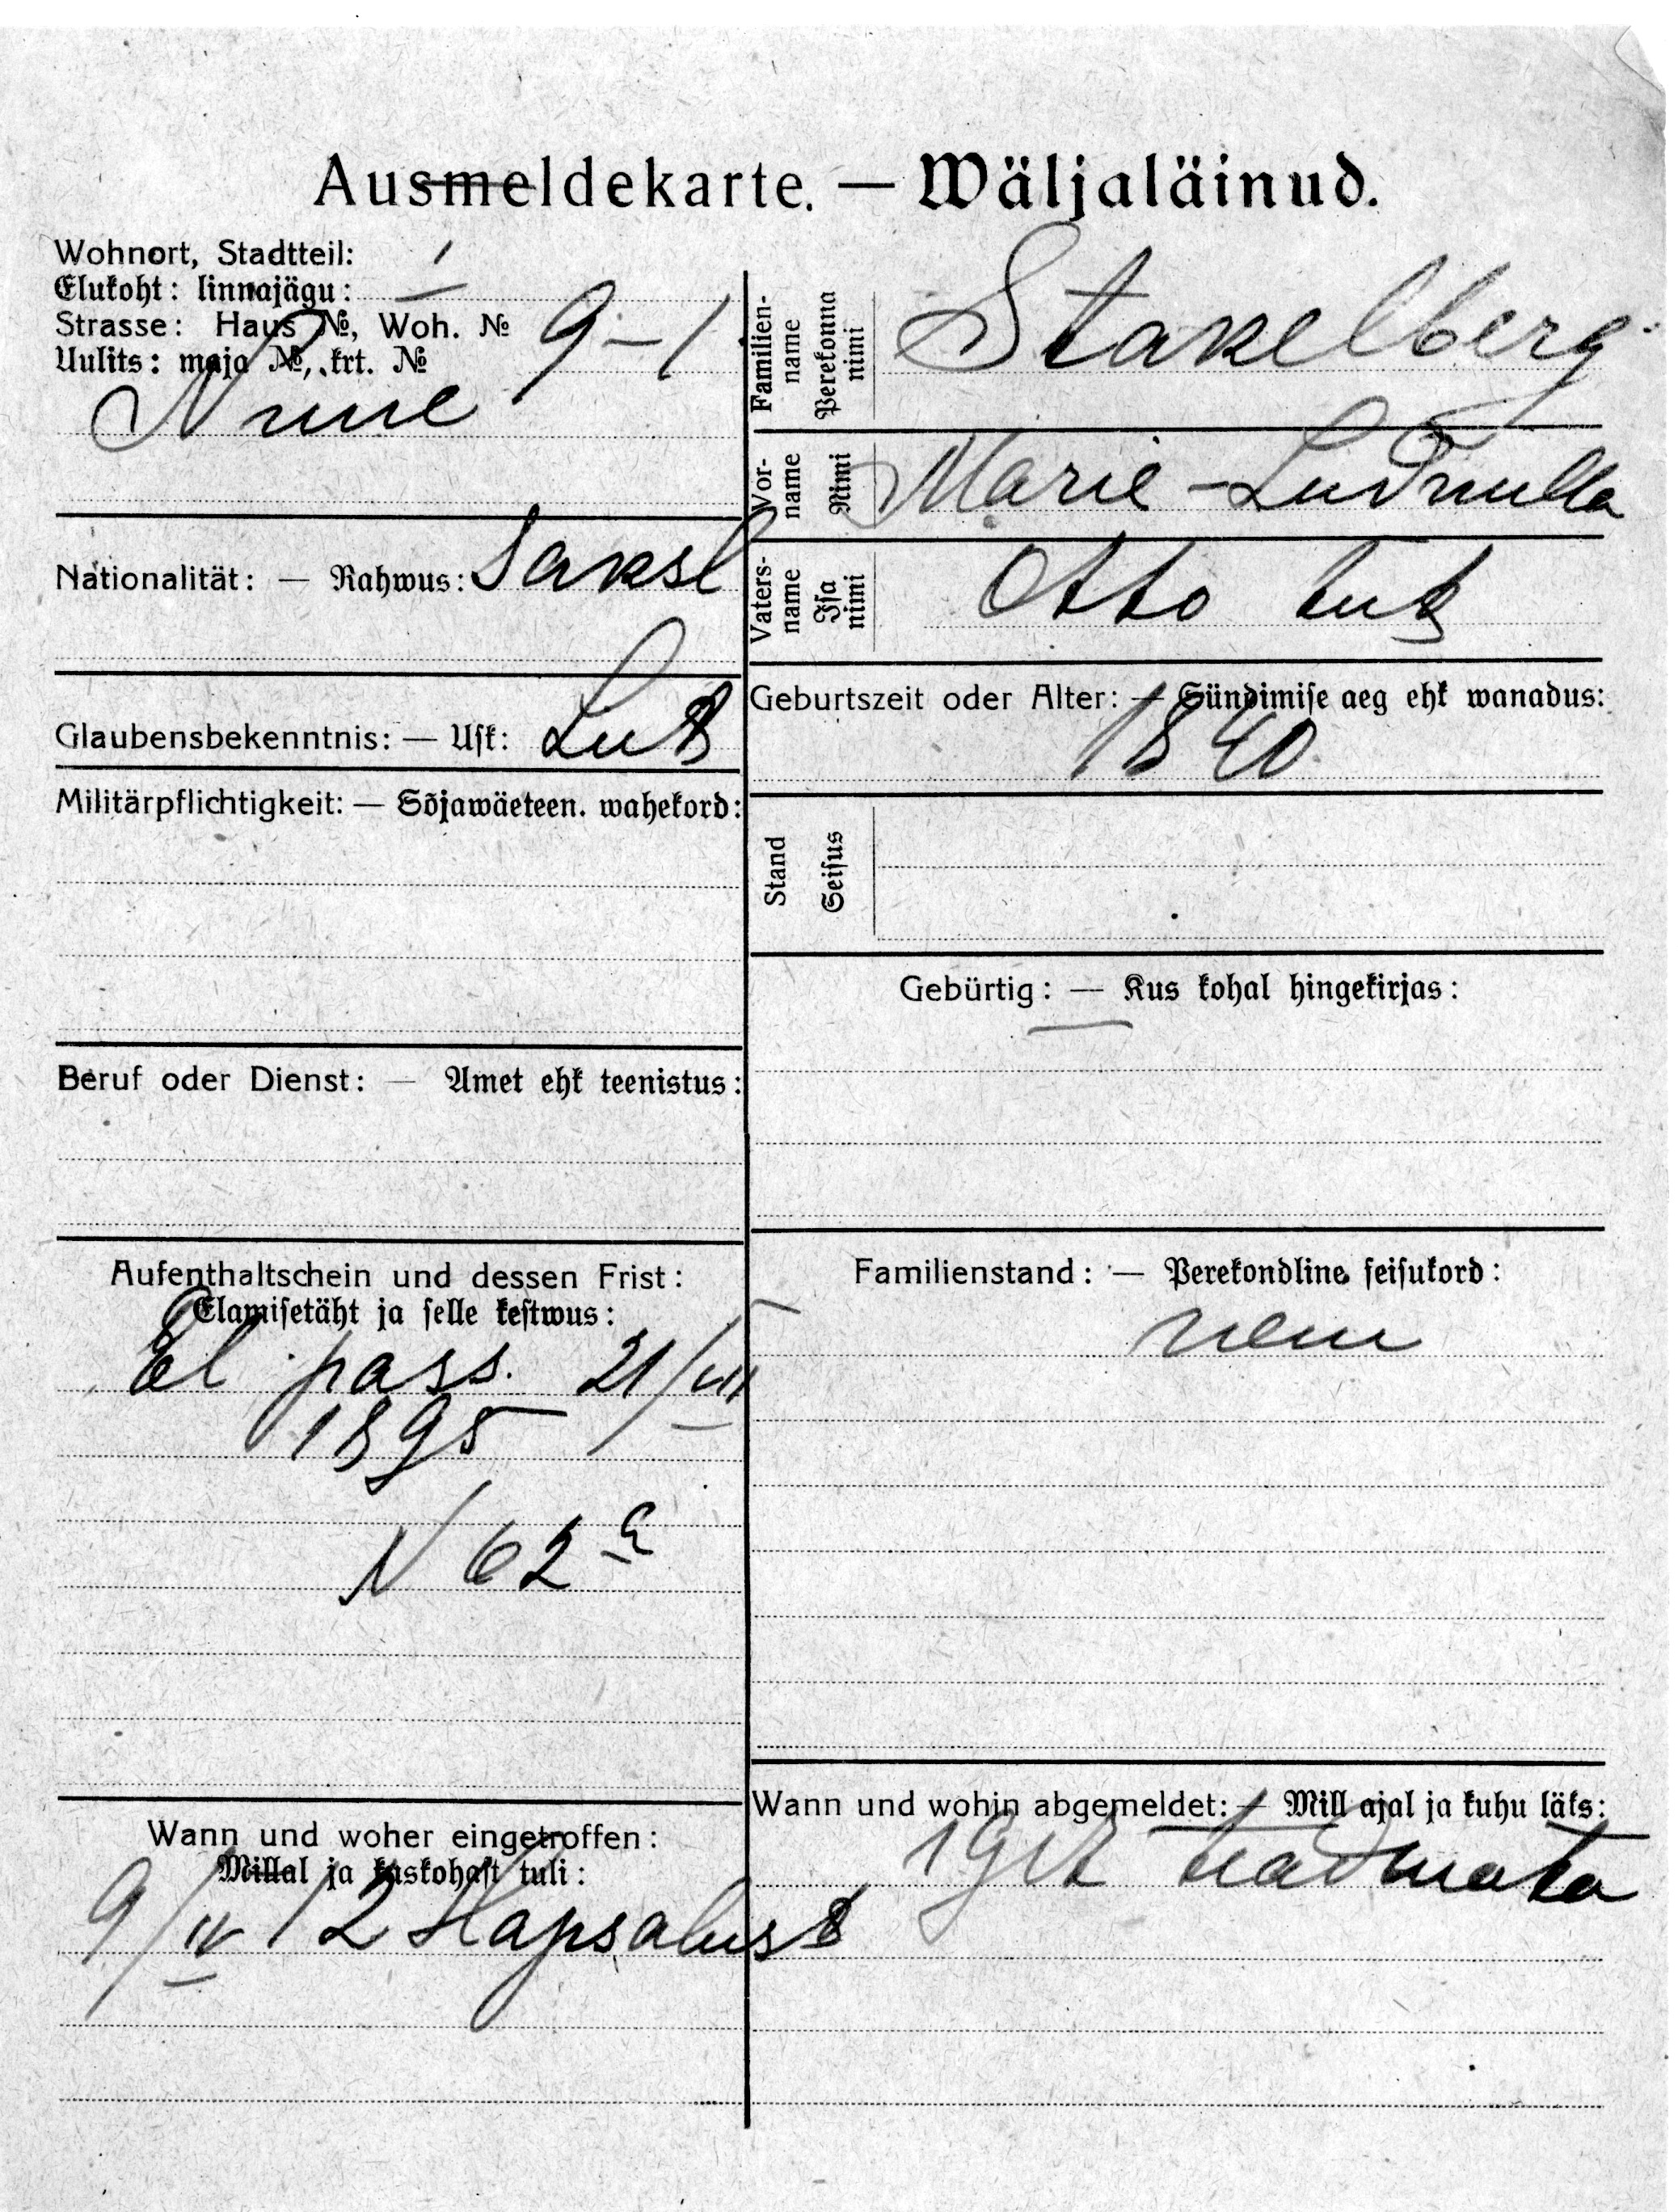 Ausmeldekarte. — Wäljaläinud.
Wohnort, Stadtteil:
Elukoht: linnajägu: I
Strasse: Haus №, Woh. № 9-1
Uulits: maja №, krt. №
Nationalität: — Rahwus: Saksl
Glaubensbekenntnis: — Usk: Lut
Militärpflichtigkeit: — Sõjawäeteen. wahekord:
Beruf oder Dienst: — Amet ehk teenistus:
Aufenthaltschein und dessen Frist:
Elamisetäht ja selle kestwus:
El pass. 21/VII
1895
N 62
Wann und woher eingetroffen:
Millal ja kuskohast tuli:
9/IV 12 Hapsalust
Familien-
name
Perekonna
nimi
Stakelberg
Vor-
name
Nimi
Marie-Ludmilla
Vaters-
name
Isa
nimi
Otto tüt
Geburtszeit oder Alter: — Sündimise aeg ehk wanadus:
1840
Stand
Seisus
Gebürtig: — Kus kohal hingekirjas:
Familienstand: — Perekondline seisukord:
Wann und wohin abgemeldet: — Mill ajal ja kuhu läks:
teadmata